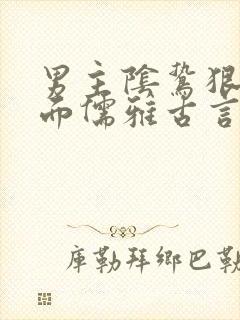 男主陰鷙狠
而儒雅古言
庫勒拜鄉巴勒